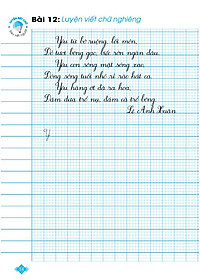 Bài 12: Luyện viết chữ nghiêng
Yêu từ bờ ruộng, lối mòn,
Đỏ tươi bông gạo, biếc rờn ngàn dâu.
Yêu con sông mặt sóng xao,
Dòng sông tuổi nhỏ rì rào hát ca.
Yêu hàng ớt đã ra hoa,
Đám dưa trổ nụ, đám cà trổ bông.
Lê Anh Xuân
Y